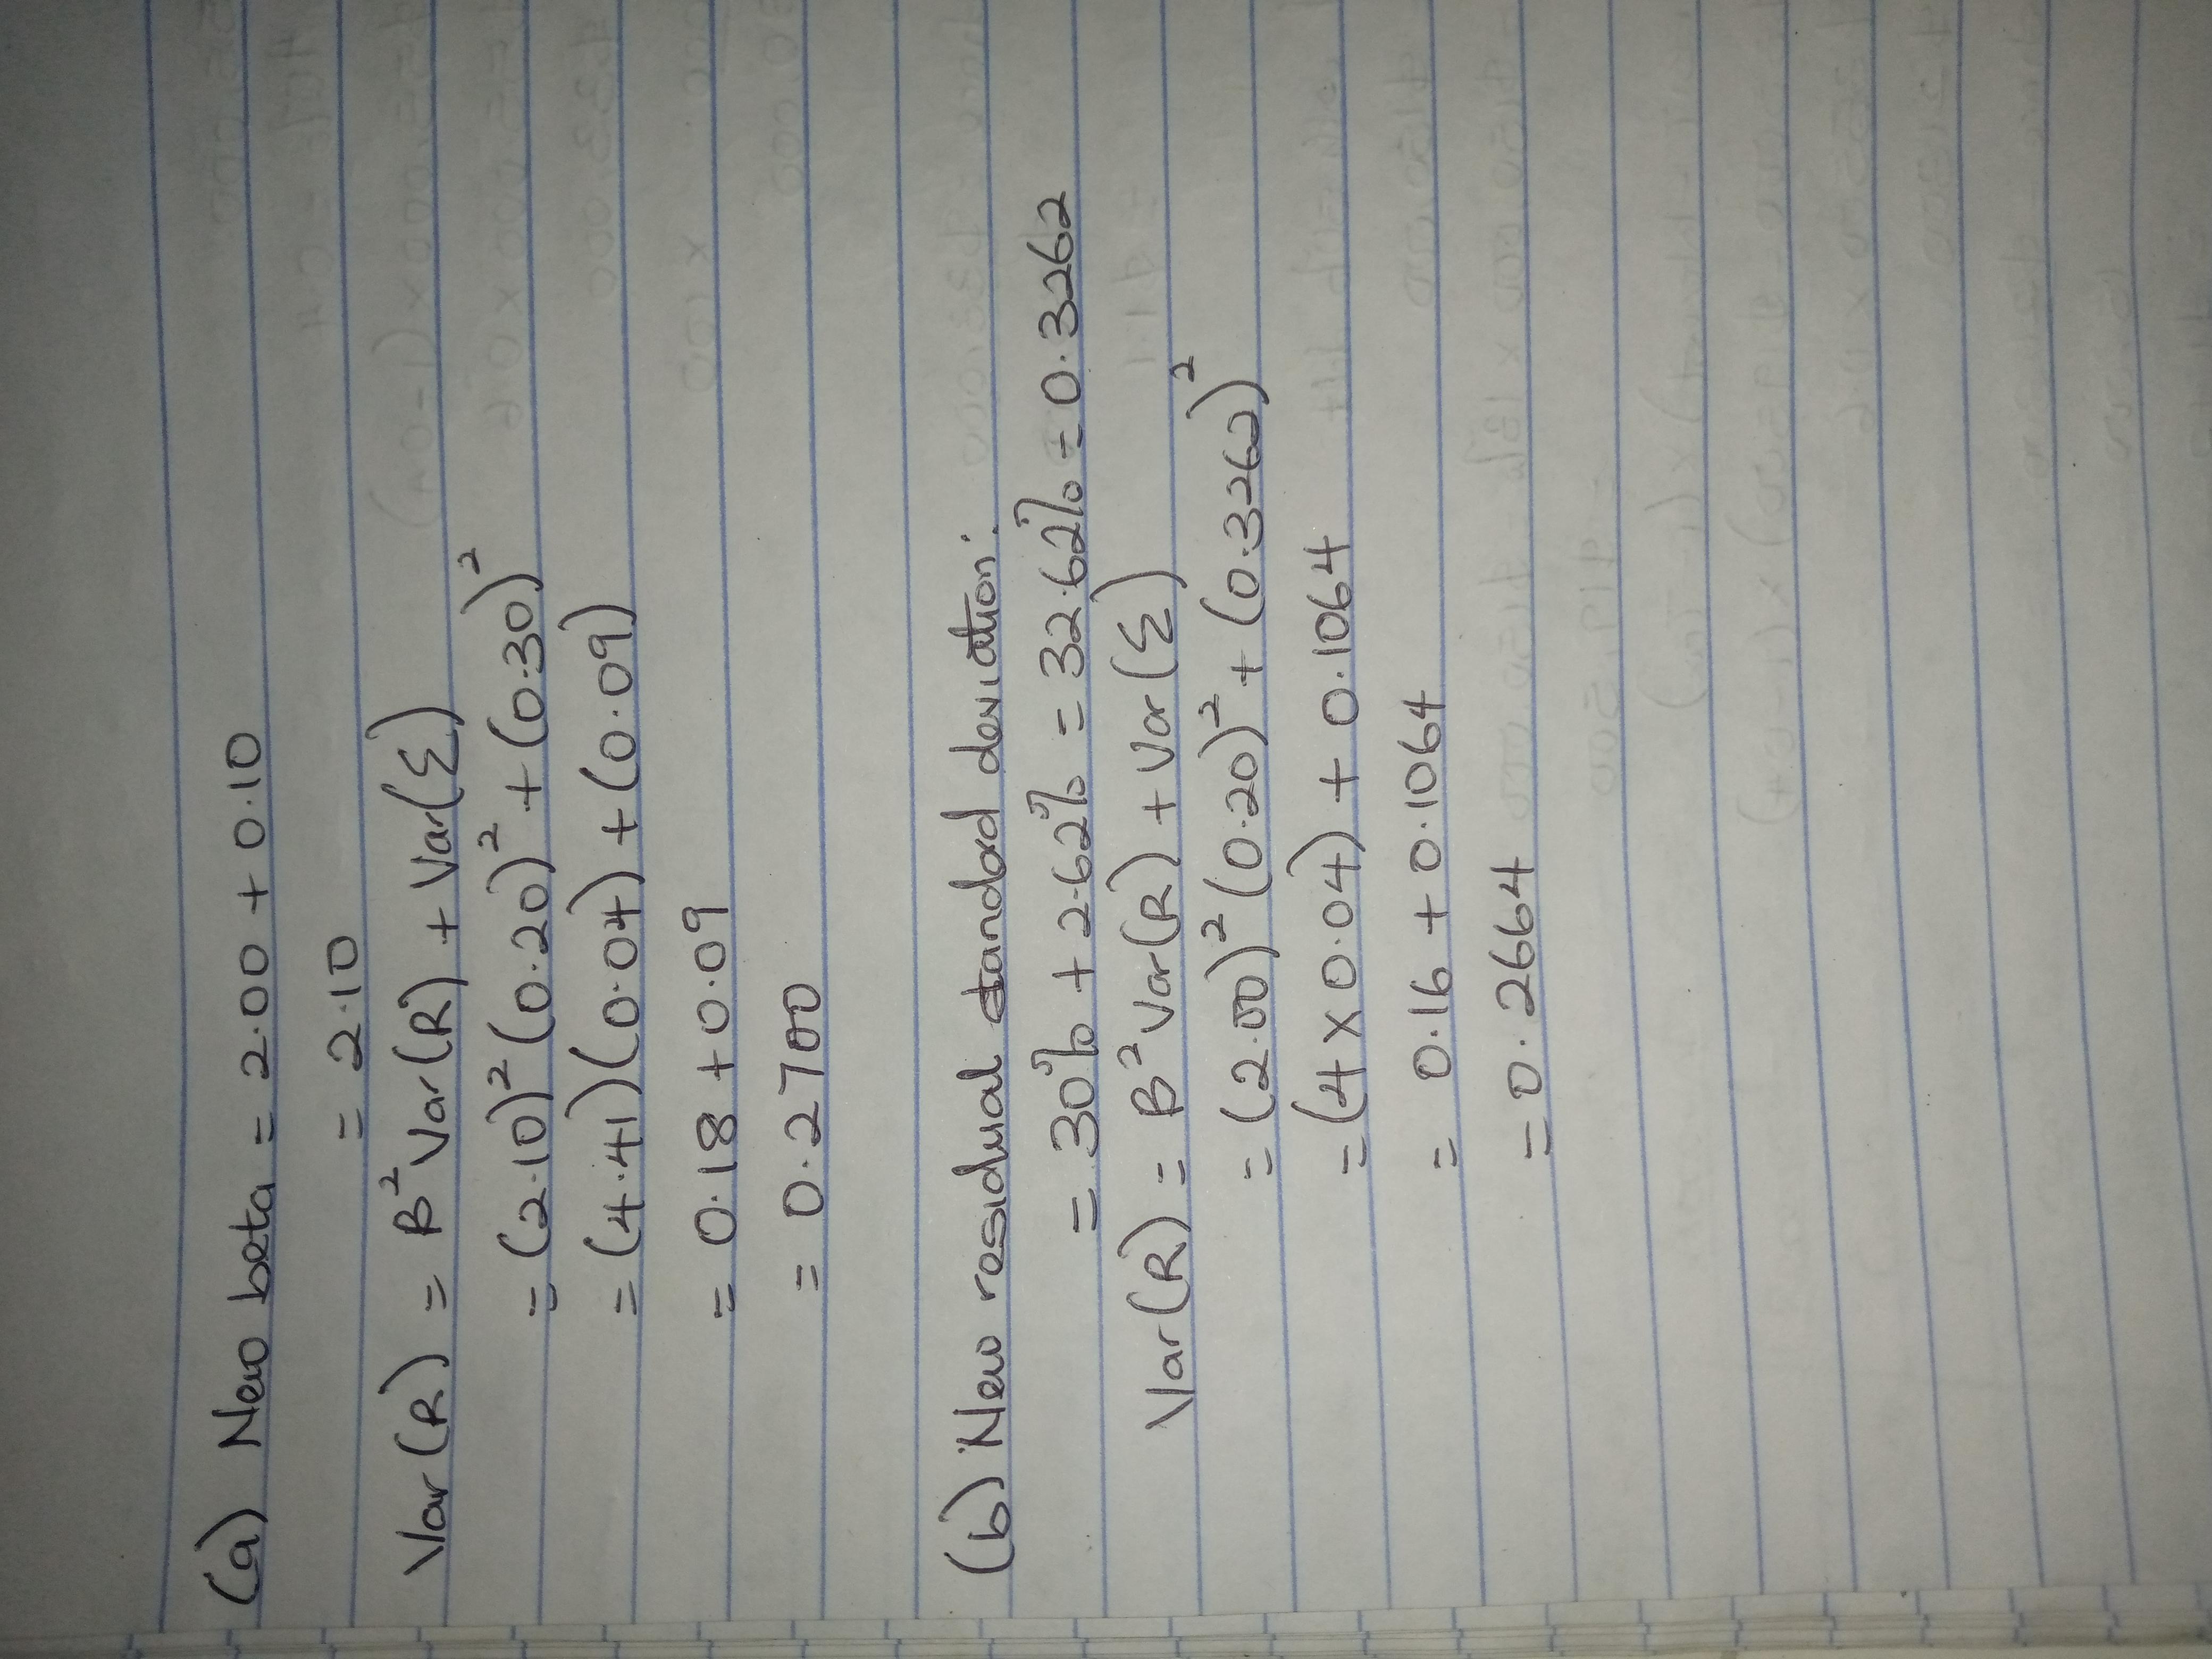 (a) New beta = 2.00 + 0.10
= 2.10
Var(R) = B²Var(R) + Var(Σ)
= (2.10)²(0.20)² + (0.30)²
= (4.41)(0.04) + (0.09)
= 0.18 + 0.09
= 0.2700
(b) New residual standard deviation:
= 30% + 2.62% = 32.62% = 0.3262
Var(R) = B²Var(R) + Var(Σ)
= (2.00)²(0.20)² + (0.3262)²
= (4 × 0.04) + 0.1064
= 0.16 + 0.1064
= 0.2664